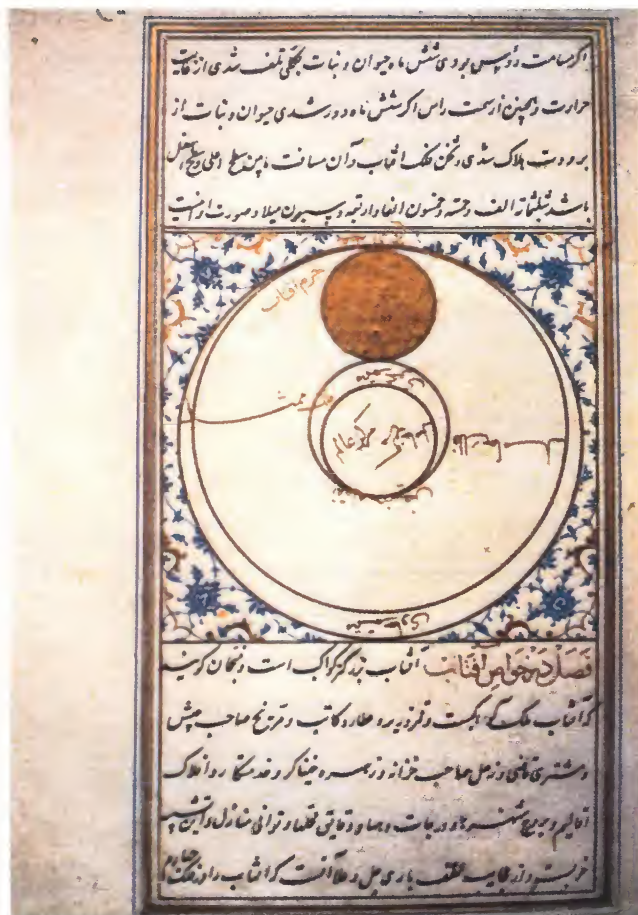 اگر مسامت رؤس بودی شش ماه حیوان و نبات بکلی تلف شدی از غایت
حرارت و همچنین از سمت راس اگر شش ماه دور شدی حیوان و نبات از
برودت هلاک شدی و ثخن فلک افتاب و آن مسافت مابین سطح اعلی و سطح اسفل
باشد ثلثمائه الف و خمسه و خمسون الفا و اربعه و سبعون میلا و صورت او اینست
جرم افتاب
مرکز عالم
فصل در خواص افتاب آفتاب بزرگتر کواکب است و منجمان گویند
که آفتاب ملک کواکبست و قمر وزیر و عطارد کاتب و مریخ صاحب جیش
و مشتری قاضی و زحل صاحب خزانه و زهره خیناگر و خدمتکار و افلاک
اقالیم و بروج شهرها و درجات و دقایق قلعها و توانی منازل و این تشبیه
خوبست و از عجایب لطف باری جل و علا آنست که آفتاب را در فلک چهارم